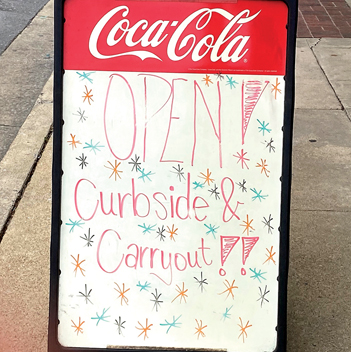 Coca-Cola
OPEN!
Curbside &
Carryout!!